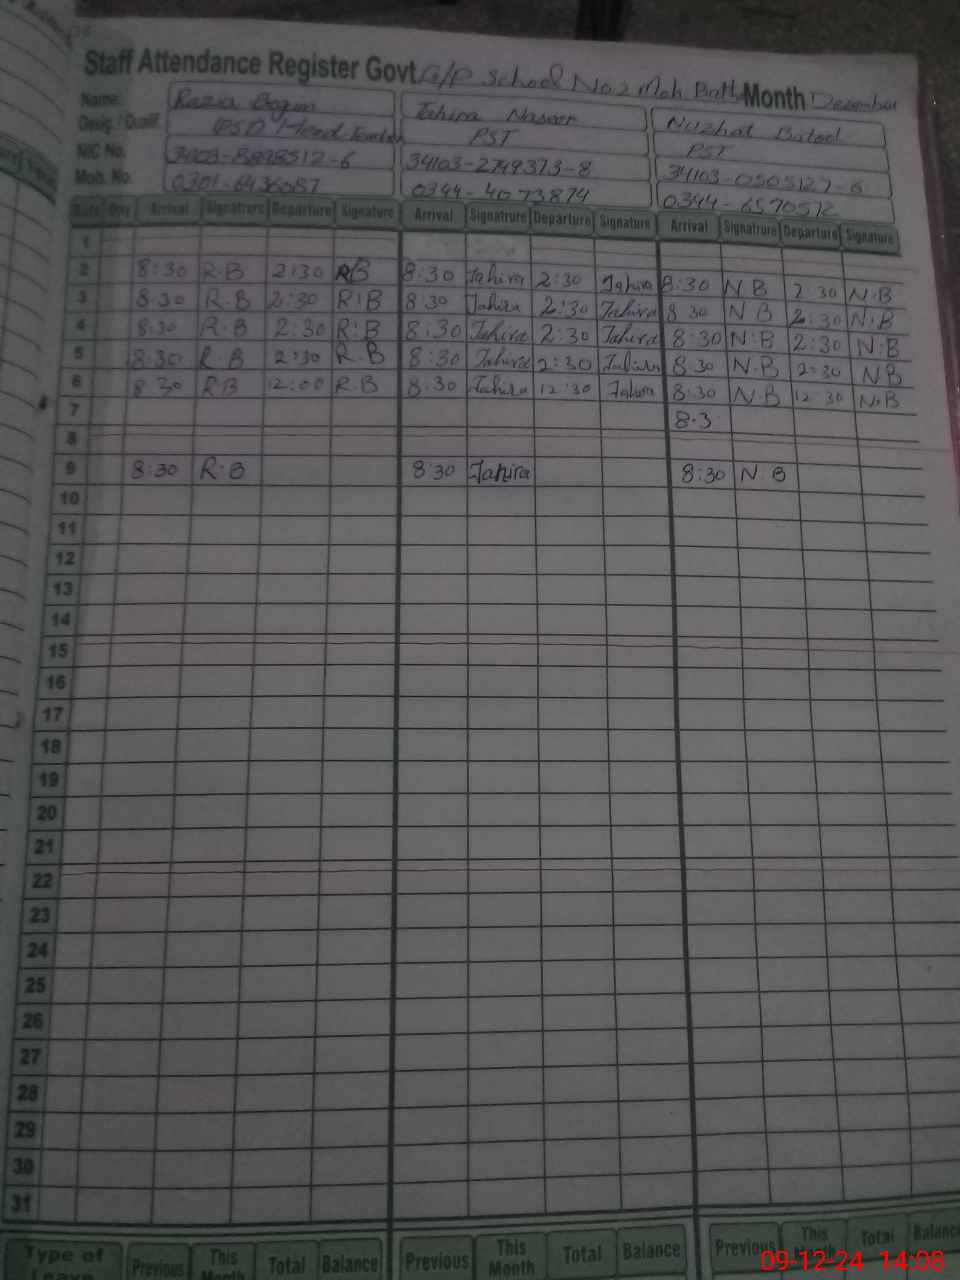 Staff Attendance Register Govt. G/P School No 2 Moh Month December
Name: Razia Begum Tahira Naseer Nuzhat Batool
Desig. / Qualif. Head Teacher PST PST
NIC No. 34103-2749373-8 34103-0505127-6
Mob. No. 0301-6436087 0344-4073874 0344-6570512
Date Day Arrival Signatrure Departure Signature Arrival Signatrure Departure Signature Arrival Signatrure Departure Signature
1
2 8:30 R.B 2:30 RB 8:30 Tahira 2:30 Tahira 8:30 N B 2:30 N.B
3 8:30 R.B 2:30 R.B 8 30 Tahira 2:30 Tahira 8 30 N B 2:30 N.B
4 8:30 R.B 2:30 R.B 8:30 Tahira 2:30 Tahira 8:30 N.B 2:30 N.B
5 8:30 R.B 2:30 R.B 8:30 Tahira 2:30 Tahira 8.30 N.B 2:30 N B
6 8 30 R.B 12:00 R.B 8:30 Tahira 12:30 Tahira 8:30 N.B 12:30 N.B
7 8.3
8
9 8:30 R.B 8:30 Tahira 8:30 N.B
10
11
12
13
14
15
16
17
18
19
20
21
22
23
24
25
26
27
28
29
30
31
Type of Previous This Month Total Balance Previous This Month Total Balance Previous This Total Balance
Leave
09-12-24 14:08